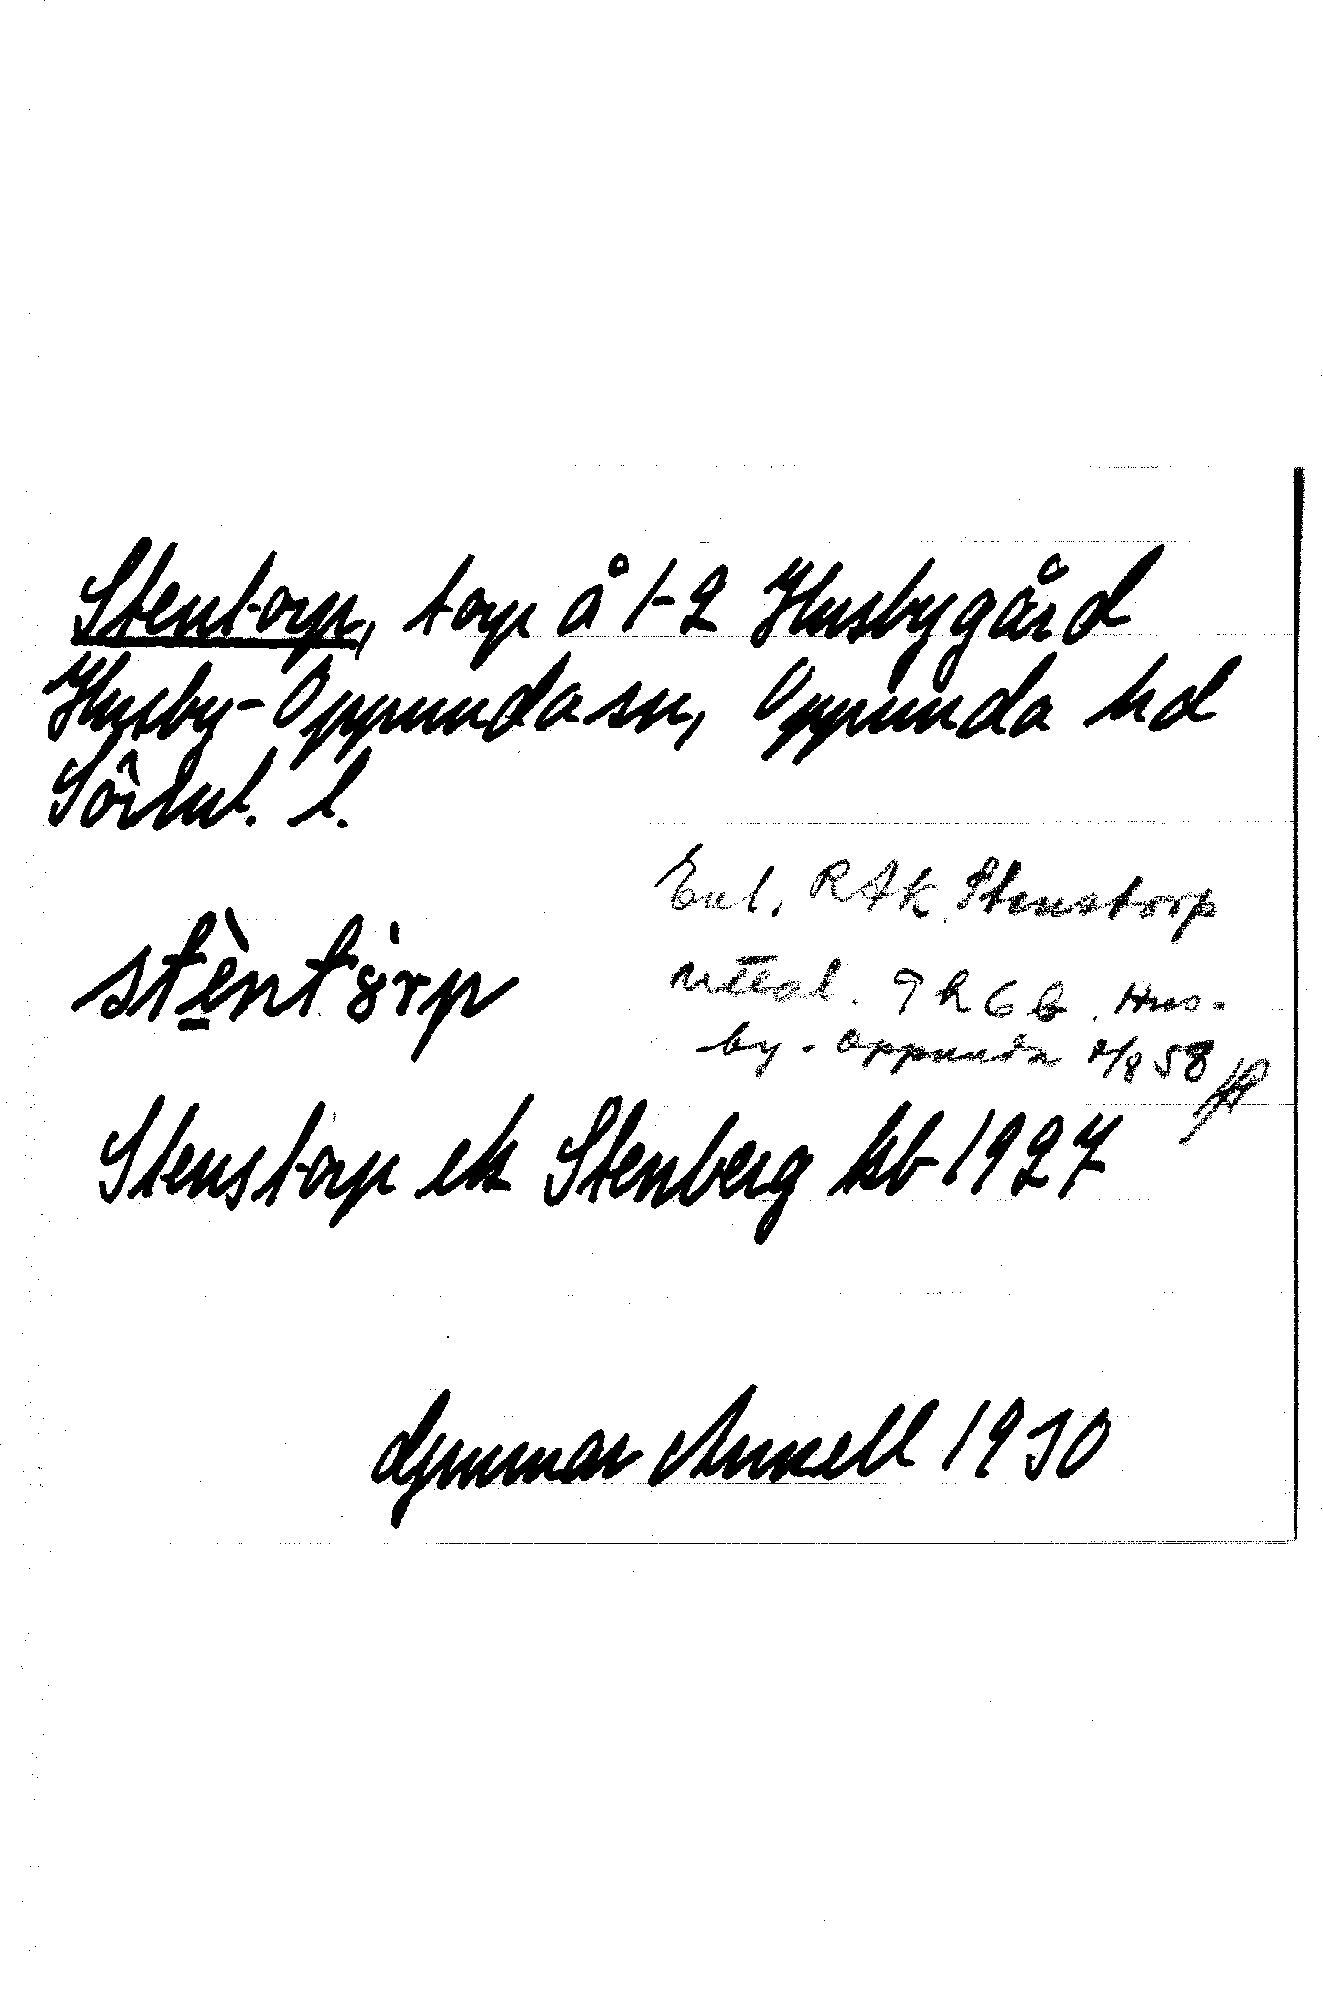 Stentorp, torp å 1-2 Husbygård
Husby-Oppunda sn, Oppunda hd
Södml. l.
Enl. RAK Stenstorp
stèntórp
uttal. 9 h 6 b. Hus-
by-Oppunda 2/8 58
Stenstorp ek Stenberg kb 1927
Gunnar Annell 1930